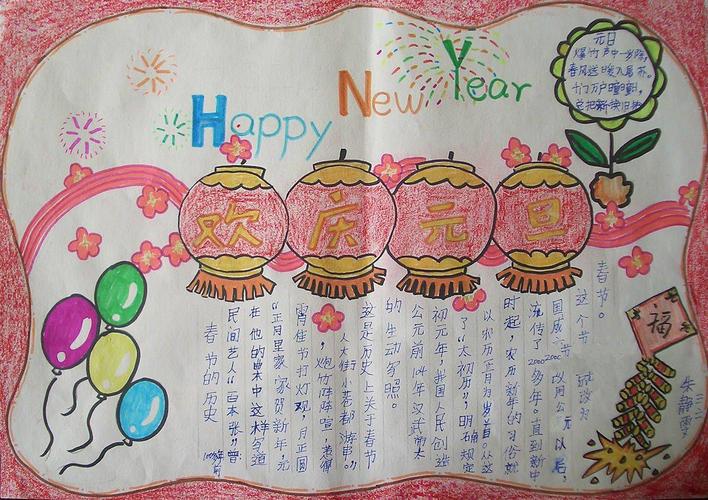 Happy New Year
元日
爆竹声中一岁除,
春风送暖入屠苏。
千门万户曈曈
总把新换旧
欢庆元旦
福
春节的历史
民间艺人“百本张”曾
在他的单中这样写道
“正月里家家贺新年,元
宵佳节打灯观,月正圆
,炮竹阵阵喧,惹得
人大街小巷都游串。”
这是历史上关于春节
的生动写照。
公元前104年汉武帝太
初元年,我国人民创造
了“太初历”,明确规定
以农历正月为岁首。从这
时起,农历新年的习俗就
流传了2000多年。直到新中
国成 改用公元以后,
这个节 改为
春节。
朱静雯